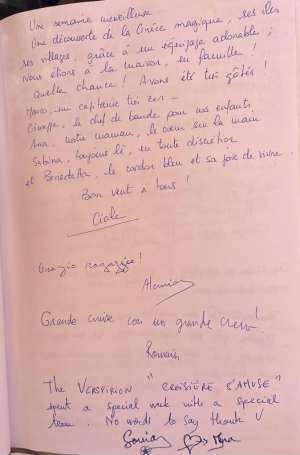 Une semaine merveilleuse
Une découverte de la Grèce magique, ses îles
ses villages, grâce à un équipage adorable ;
Nous étions à la maison, en famille !
Quelle chance ! Avons été très gâtés !
Marco, un capitaine très zen -
Giuseppe, le chef de bande pour nos enfants,
Ana, notre maman, le cœur sur la main
Sabina, toujours là, en toute discrétion
et Benedetta, le cordon bleu et sa joie de vivre.
Bon vent à tous !
Grazie ragazzi !
Grande crew con un grande Crew!
Romain
The VERSPIRION "CROISIÈRE S'AMUSE"
spent a special week with a special
team. No words to say thank U